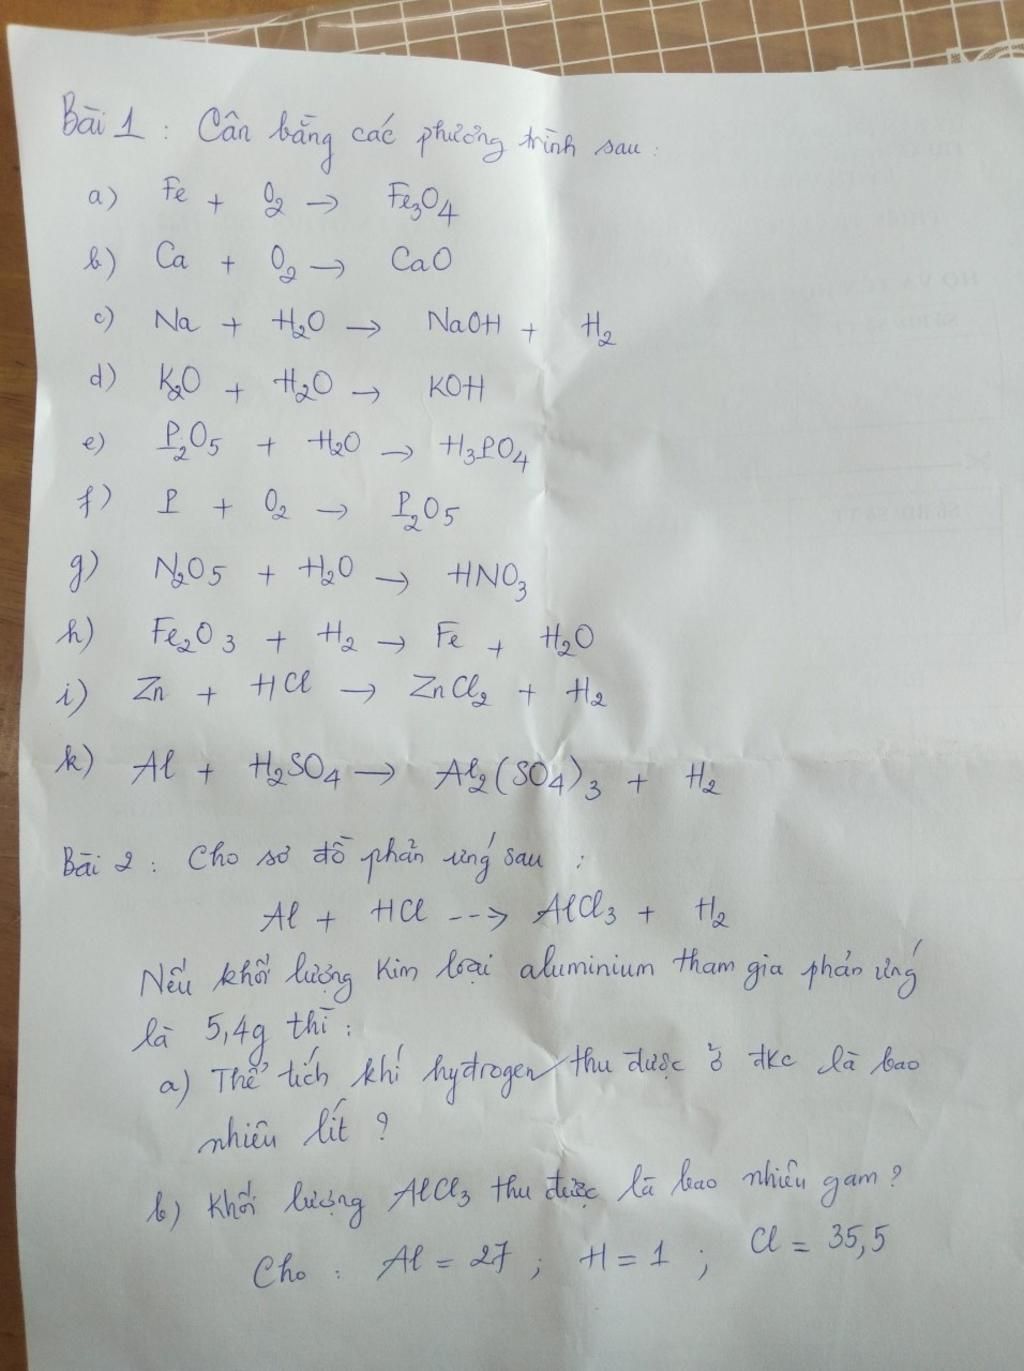 Bài 1 : Cân bằng các phương trình sau :
a) Fe + O₂ → Fe₃O₄
b) Ca + O₂ → CaO
c) Na + H₂O → NaOH + H₂
d) K₂O + H₂O → KOH
e) P₂O₅ + H₂O → H₃PO₄
f) P + O₂ → P₂O₅
g) N₂O₅ + H₂O → HNO₃
h) Fe₂O₃ + H₂ → Fe + H₂O
i) Zn + HCl → ZnCl₂ + H₂
k) Al + H₂SO₄ → Al₂(SO₄)₃ + H₂
Bài 2 : Cho sơ đồ phản ứng sau :
Al + HCl --→ AlCl₃ + H₂
Nếu khối lượng kim loại aluminium tham gia phản ứng
là 5,4g thì :
a) Thể tích khí hydrogen thu được ở đkc là bao
nhiêu lít ?
b) Khối lượng AlCl₃ thu được là bao nhiêu gam ?
Cho : Al = 27 ; H = 1 ; Cl = 35,5